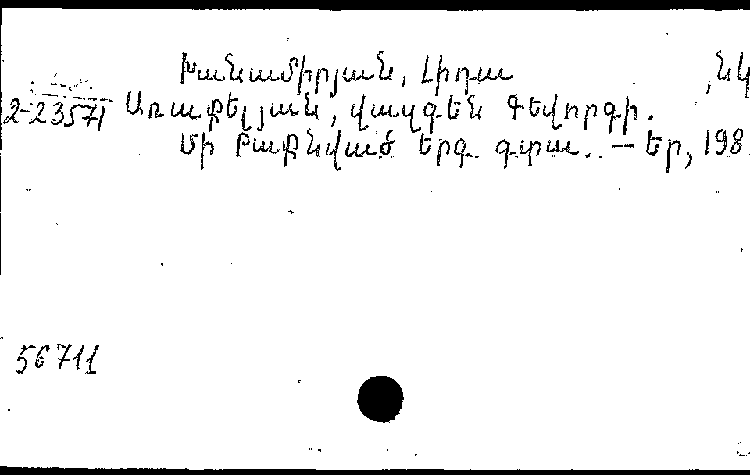 Խանամիրյան, Լիդա ,նկ
2-23571 Առաքելյան, Վազգեն Գեվորգի.
Մի թաքնված երգ գտա. — Եր, 198
56711